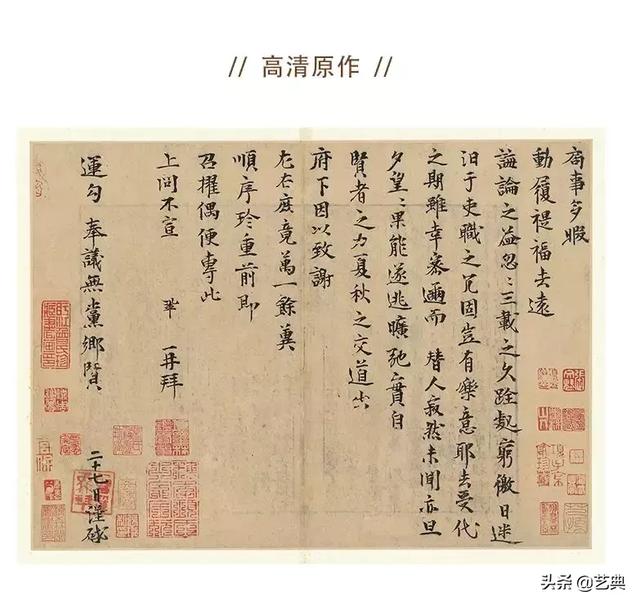 // 高清原作 //
局事多暇
動履禔福去遠
誨論之益忽〻三載之久跧處窮徼日迷
汩于吏職之冗固豈有樂意耶去受代
之期雖幸密邇而替人寂然未聞亦旦
夕望〻果能遂逃曠弛實自
賢者之力夏秋之交道出
府下因以致謝
左右庶竟萬一餘冀
順序珍重前即
召擢偶便專此
上問不宣 鞏 再拜
運勾 奉議無黨鄉賢 二十七日謹啓
头条 @艺典